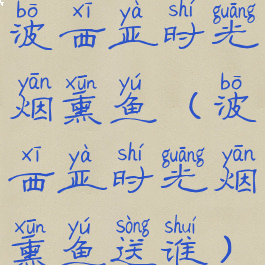 bō xī yà shí guāng
波西亚时光
yān xūn yú bō
烟熏鱼（波
xī yà shí guāng yān
西亚时光烟
xūn yú sòng shuí
熏鱼送谁）